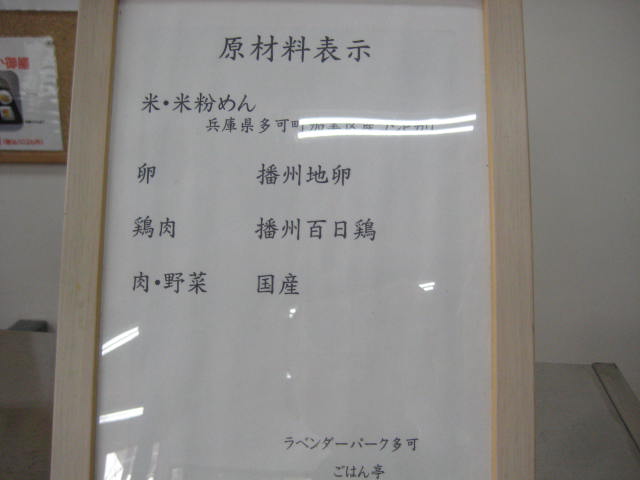 原材料表示
米・米粉めん
兵庫県多可町加美区産
卵 播州地卵
鶏肉 播州百日鶏
肉・野菜 国産
ラベンダーパーク多可
ごはん亭